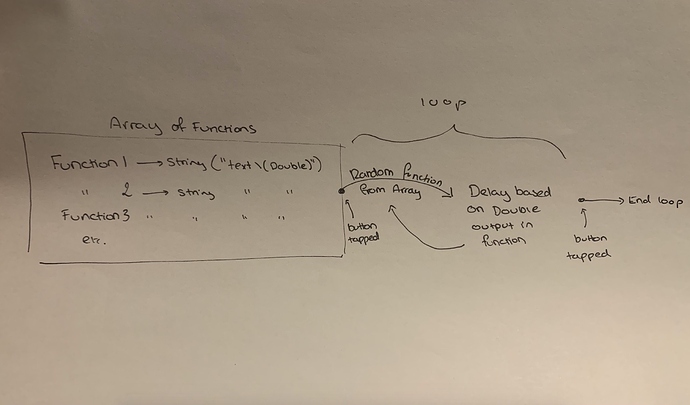 loop
Array of Functions
Function 1 → String ("text \(Double)")
" 2 → String " "
Function 3 " " " "
etc.
Random function
from Array
button
tapped
Delay based
on Double
output in
function
button
tapped
End loop